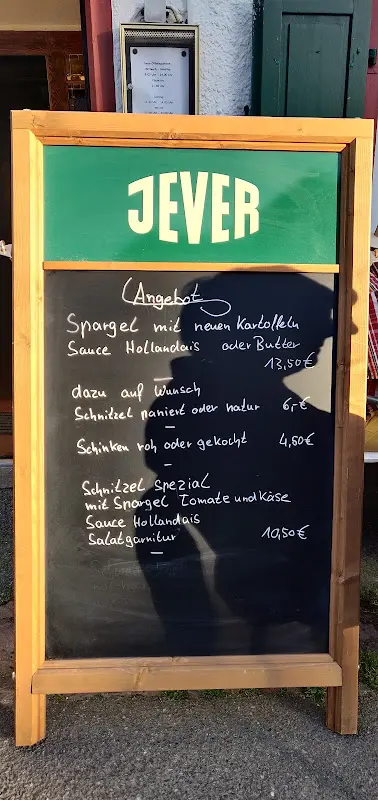 JEVER
Angebot
Spargel mit neuen Kartoffeln
Sauce Hollandais oder Butter
13,50€
dazu auf Wunsch
Schnitzel paniert oder natur 6,-€
Schinken roh oder gekocht 4,50€
Schnitzel Spezial
mit Spargel Tomate und Käse
Sauce Hollandais
Salatgarnitur 10,50€